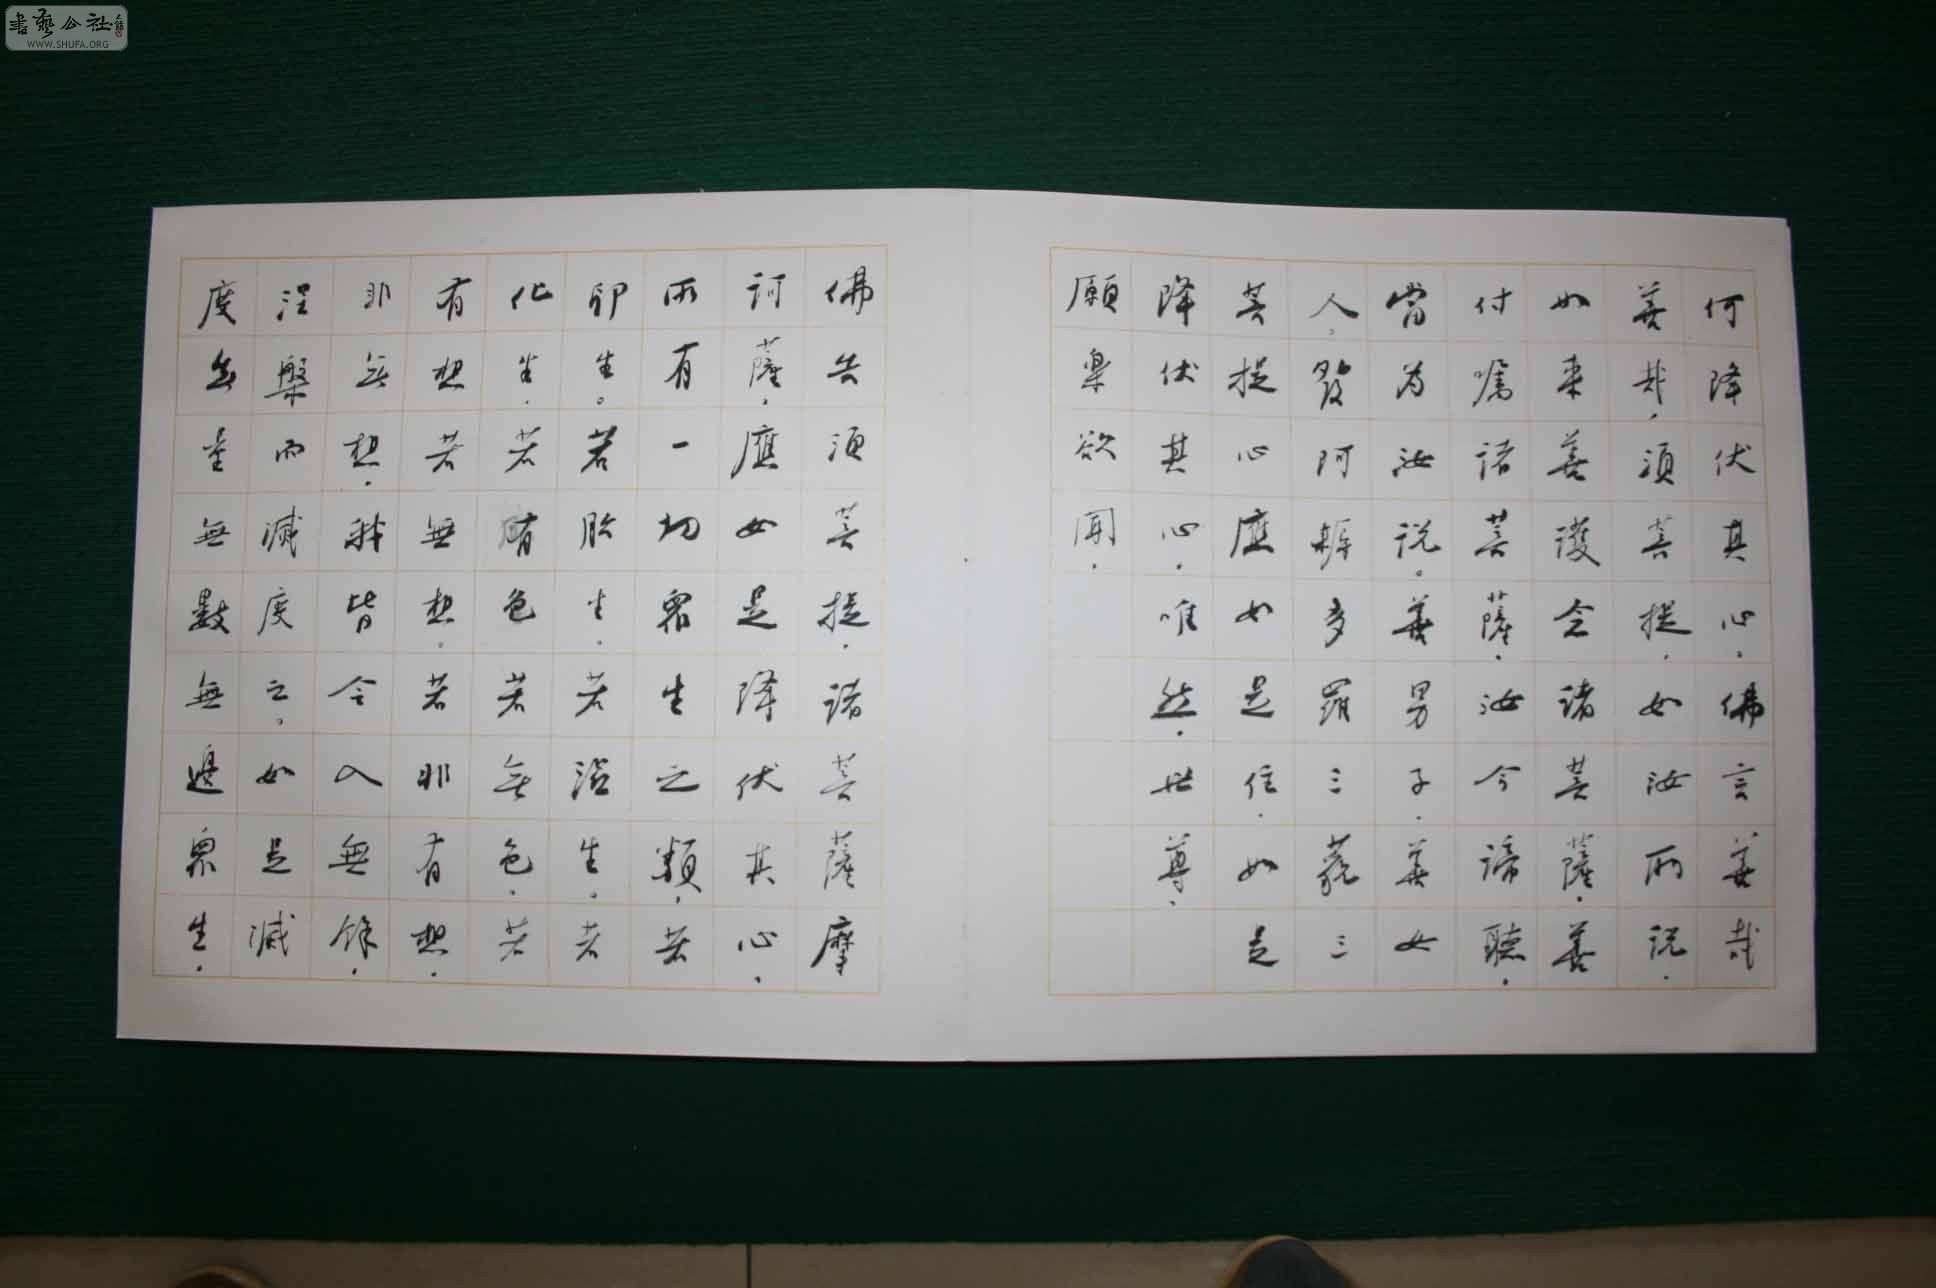 書藝公社
WWW.SHUFA.ORG
何降伏其心。佛言善哉
善哉，須菩提，如汝所説，
如来善護念諸菩薩，善
付嘱諸菩薩，汝今諦聽，
當为汝説。善男子，善女
人。發阿耨多羅三藐三
菩提心應如是住，如是
降伏其心，唯然，世尊，
願樂欲聞，
佛告須菩提，諸菩薩摩
訶薩，應如是降伏其心，
所有一切眾生之類，若
卵生。若胎生，若溼生。若
化生，若有色若無色，若
有想若無想。若非有想，
非無想，我皆令入無餘，
涅槃而滅度之。如是滅
度無量無數無邊眾生，